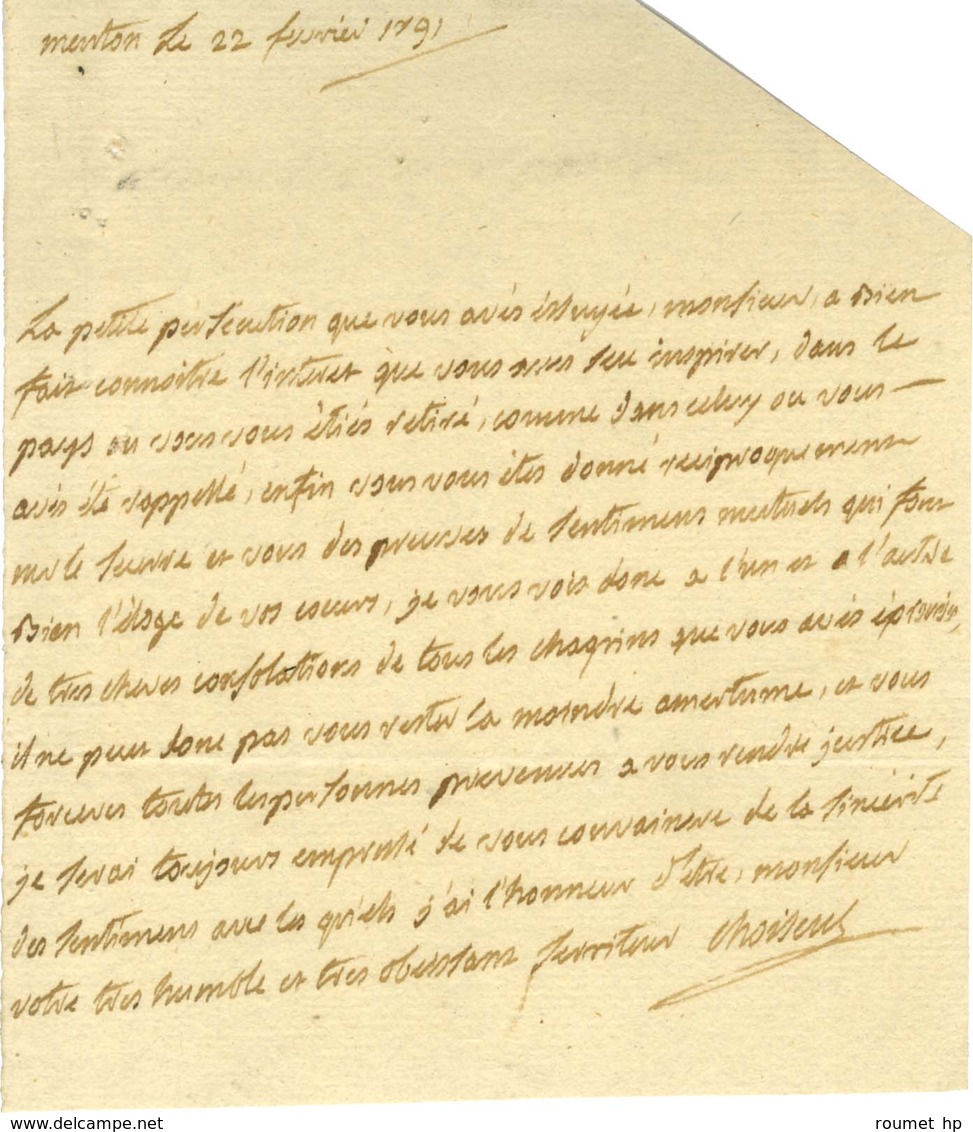 menton le 22 fevrier 1791
La petite persecution que vous avés éssuyée, monsieur, a Bien
fait connoitre l'interet que vous aves seu inspirer, dans le
pays ou vous vous étiés retiré, comme dans celuy ou vous
avés été rappellé, enfin vous vous étes donné reciproquement
et vous des preuves de sentimens mutuels qui font
Bien l'éloge de vos coeurs, je vous vois donc a l'un et a l'autre
de tres cheres consolations de tous les chagrins que vous avés éprouvés,
il ne peut donc pas vous rester la moindre amertume, et vous
forceres toutes les personnes prevenues a vous rendre justice,
je serai toujours empressé de vous convaincre de la sincerité
des sentimens avec les quels j'ai l'honneur d'etre, monsieur
votre tres humble et tres obeissant serviteur choiseul
www.delcampe.net
roumet hp